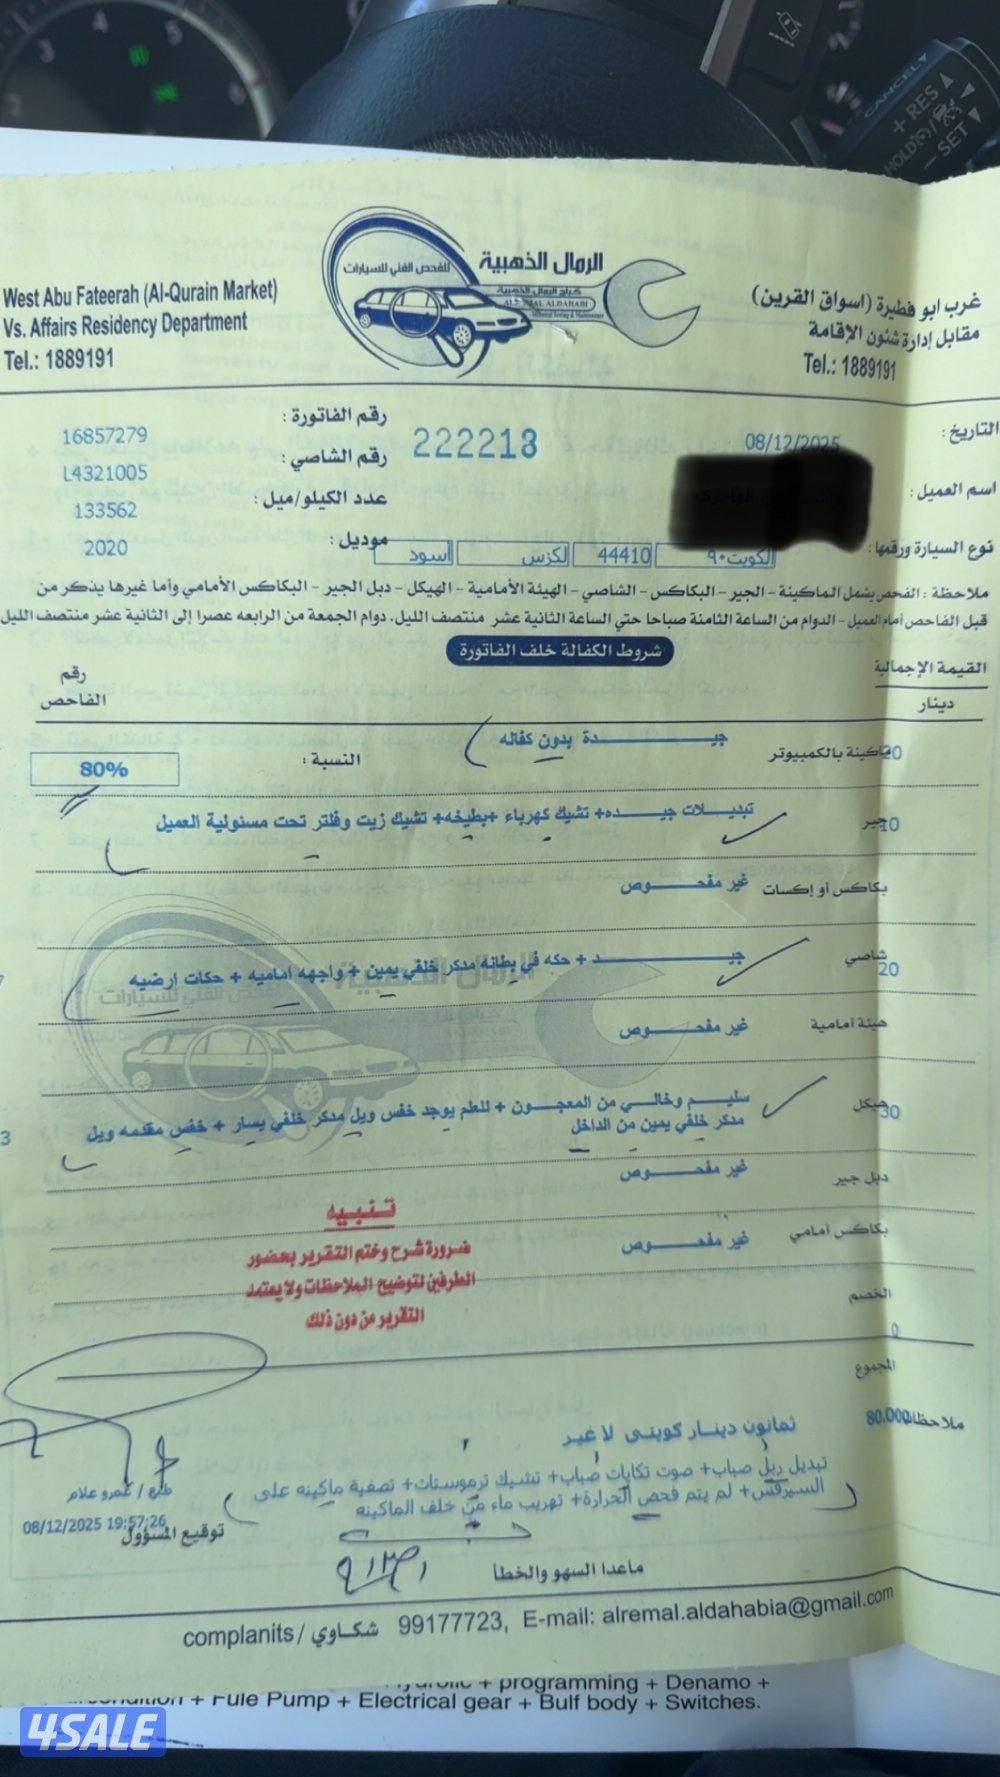 3
4
5
6
CANCEL
+ RES
HOLD
- SET
الرمال الذهبية
للفحص الفني للسيارات
كراج الرمال الذهبية
West Abu Fateerah (Al-Qurain Market)
Vs. Affairs Residency Department
Tel.: 1889191
غرب ابو فطيرة (اسواق القرين)
مقابل إدارة شئون الإقامة
Tel.: 1889191
التاريخ : 08/12/2025
رقم الفاتورة : 16857279
222218
اسم العميل :
رقم الشاصي : L4321005
عدد الكيلو/ميل : 133562
نوع السيارة ورقمها : الكويت٩٠ 44410 لكزس أسود
موديل : 2020
ملاحظة : الفحص يشمل الماكينة - الجير - البكاكس - الشاصي - الهيئة الأمامية - الهيكل - دبل الجير - البكاكس الأمامي وأما غيرها يذكر من
قبل الفاحص أمام العميل - الدوام من الساعة الثامنة صباحا حتي الساعة الثانية عشر منتصف الليل. دوام الجمعة من الرابعه عصرا إلى الثانية عشر منتصف الليل
شروط الكفالة خلف الفاتورة
القيمة الإجمالية
رقم
دينار
الفاحص
20 ماكينة بالكمبيوتر جيـــدة بدون كفاله
النسبة : 80%
10 جير تبديـلات جيـــده+ تشيك كهرباء +بطيخه+ تشيك زيت وفلتر تحت مسئولية العميل
بكاكس أو إكسات غير مفحـــوص
20 شاصي جيـــد + حكه في بطانه مدكر خلفي يمين + واجهه أماميه + حكات ارضيه
7
هيئة أمامية غير مفحـــوص
30 هيكل سليـــم وخالـــي من المعجـــون + للعلم يوجد خفس ويل مدكر خلفي يسار + خفس مقدمه ويل
مدكر خلفي يمين من الداخل
3
دبل جير غير مفحـــوص
بكاكس أمامي غير مفحـــوص
تـنـبـيه
ضرورة شرح وختم التقرير بحضور
الطرفين لتوضيح الملاحظات ولا يعتمد
التقرير من دون ذلك
الخصم
0
المجموع
80.000
ثمانون دينار كويتى لا غير
ملاحظات
تبديل ربل صباب+ صوت تكايات صباب+ تشيك ترموستات+ تصفية ماكينه على
السيرفس+ لم يتم فحص الحرارة+ تهريب ماء من خلف الماكينه
طبع / عمرو علام
08/12/2025 19:57:26
توقيع المسؤول
ماعدا السهو والخطا
complanits / شكـاوي 99177723, E-mail: alremal.aldahabia@gmail.com
+ programming + Denamo +
+ Fule Pump + Electrical gear + Bulf body + Switches.
4SALE